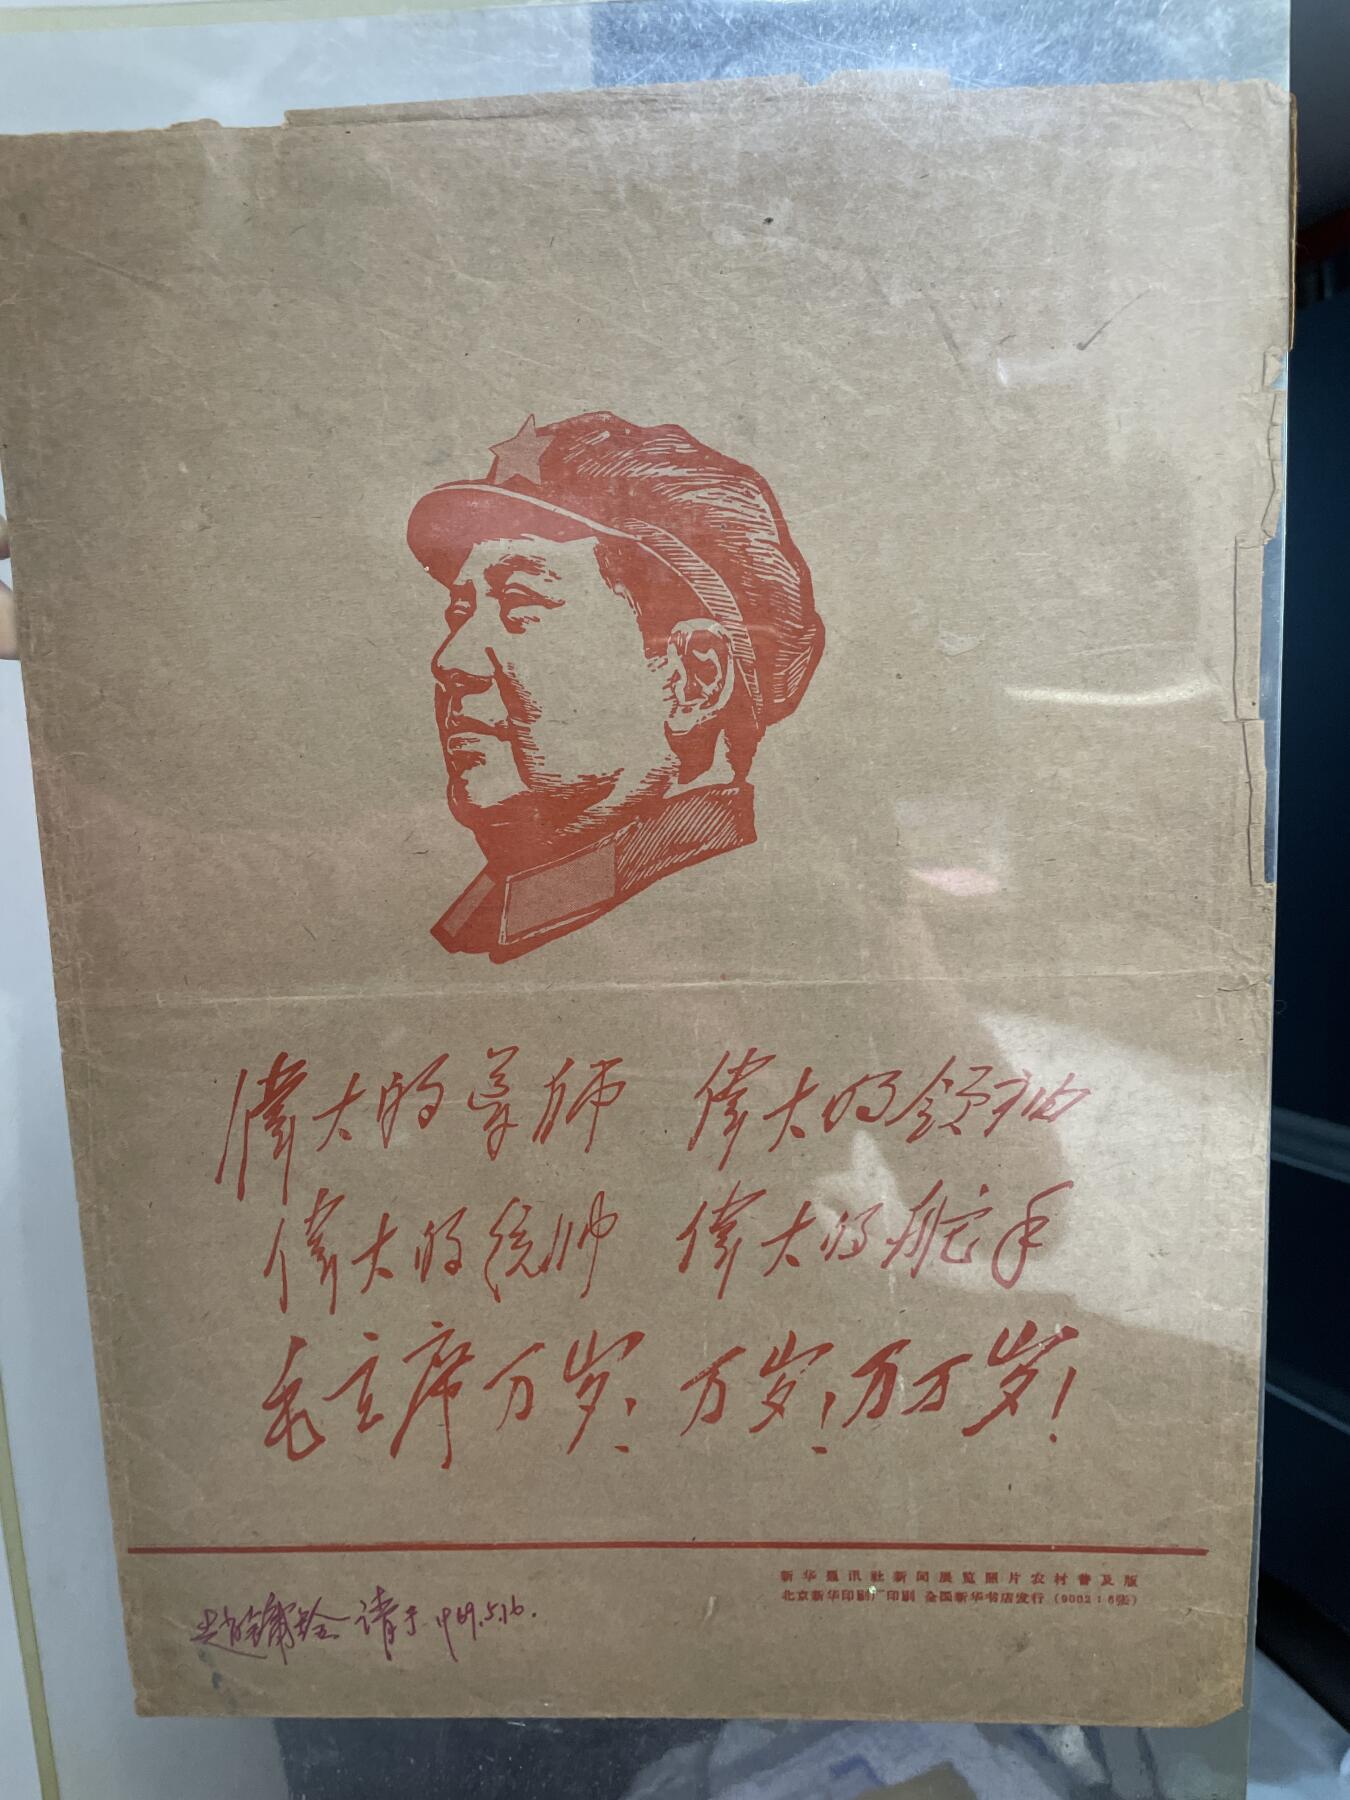 偉大的导师 偉大的领袖
偉大的统帅 偉大的舵手
毛主席万岁！万岁！万万岁！
新华通讯社新闻展览照片农村普及版
北京新华印刷厂印刷 全国新华书店发行（9002：6张）
请于1969.5.16.